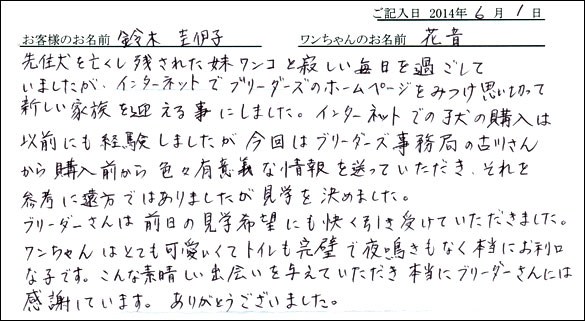 ご記入日 2014年 6月 1日
お客様のお名前 鈴木 圭伊子 ワンちゃんのお名前 花音
先住犬を亡くし残された妹ワンコと寂しい毎日を過ごして
いましたが、インターネットでブリーダーズのホームページをみつけ思い切って
新しい家族を迎える事にしました。インターネットでの子犬の購入は
以前にも経験しましたが今回はブリーダーズ事務局の古川さん
から購入前から色々有意義な情報を送っていただき、それを
参考に遠方ではありましたが見学を決めました。
ブリーダーさんは前日の見学希望にも快く引き受けていただきました。
ワンちゃんはとても可愛いくてトイレも完璧で夜鳴きもなく本当にお利口
な子です。こんな素晴しい出会いを与えていただき本当にブリーダーさんには
感謝しています。ありがとうございました。